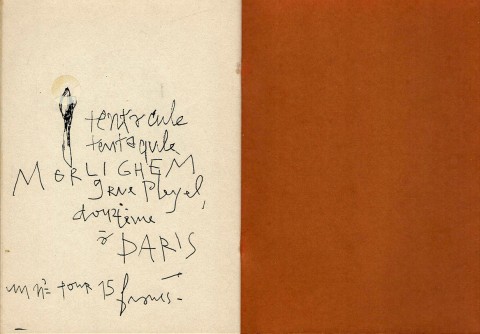 tentacule
tentaqule
MORLIGHEM
9 rue Pleyel,
douzième
à PARIS
un n° pour 15 francs.